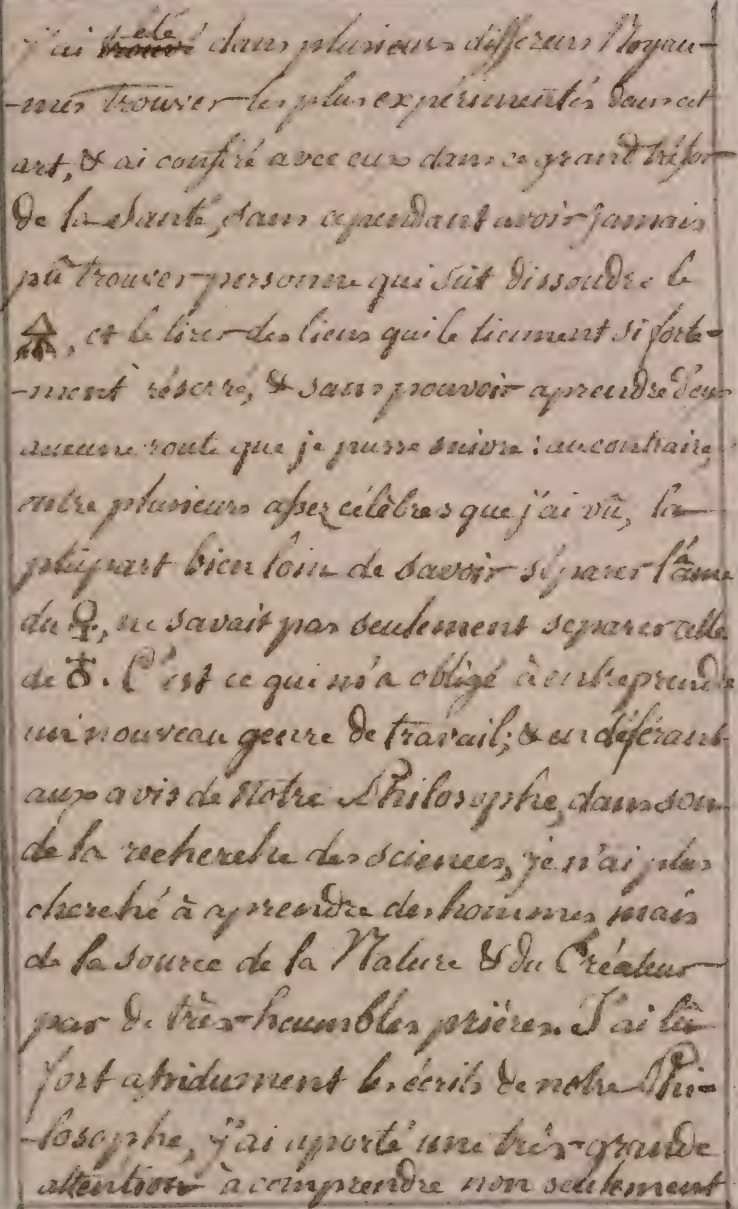 J'ai été dans plusieurs differens Royau-
-mes trouver les plus expérimentés dans cet
art, & ai conféré avec eux dans ce grand trésor
de la Santé, sans cependant avoir jamais
pû trouver personne qui sût dissoudre le
🜍, et le tirer des liens qui le tiennent si forte-
-ment réserré, & sans pouvoir aprendre d'eux
aucune route que je pusse suivre : au contraire,
outre plusieurs assez célèbres que j'ai vû, la
plûpart bien loin de savoir séparer l'âme
du ♀, ne savait pas seulement separer celle
de ♁. C'est ce qui m'a obligé à entreprendre
un nouveau genre de travail; & en déférant
aux avis de Notre Philosophe, dans son
de la recherche des sciences, je n'ai plus
cherché à aprendre des hommes mais
de la source de la Nature & du Créateur
par de très-humbles prières. J'ai lû
fort assidument les écrits de notre Phi-
-losophe, j'ai aporté une très-grande
attention à comprendre non seulement